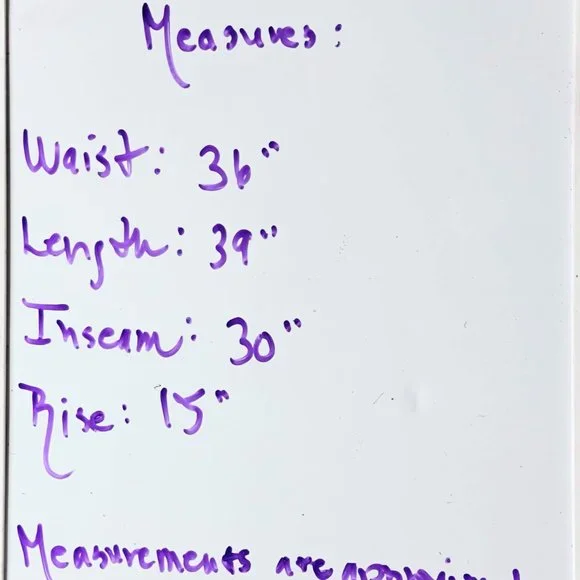 Measures:
Waist: 36"
Length: 39"
Inseam: 30"
Rise: 15"
Measurements are